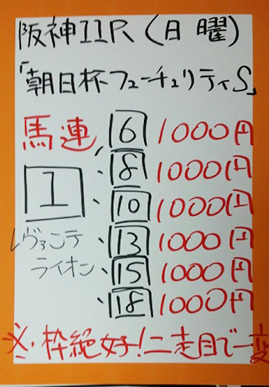 阪神11R(日曜)
「朝日杯フューチュリティS」
馬連 6 1000円
・8 1000円
1 ・10 1000円
レヴァンテ ・13 1000円
ライオン ・15 1000円
・18 1000円
※・枠絶好!二走目で一変